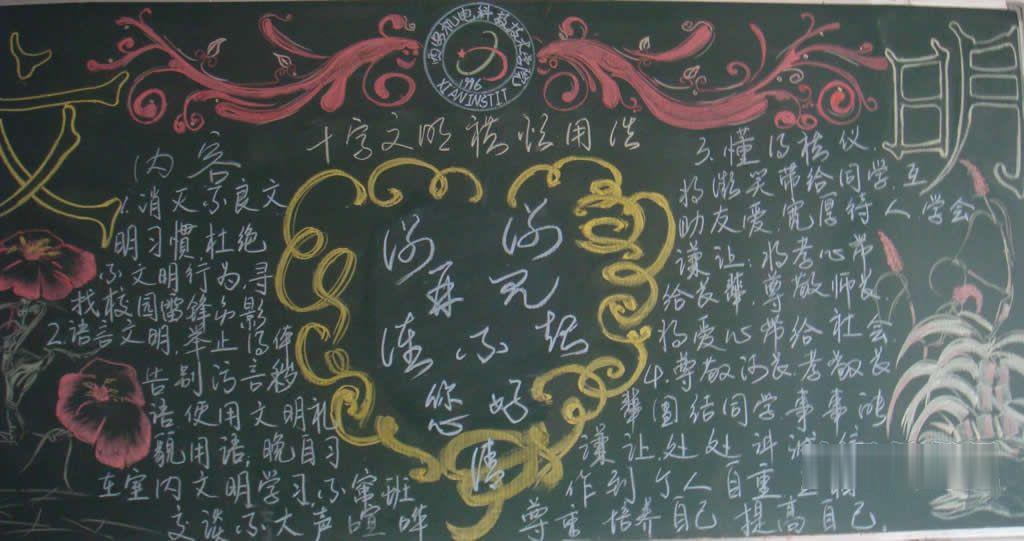 文
明
1996
XI'AN INSTIT
十字文明礼貌用法
内容
1.消灭不良文
明习惯,杜绝
不文明行为,寻
找校园雷锋的影
2.语言文明,举止得体
告别污言秽
语使用文明礼
貌用语,晚自习
在室内文明学习不窜班
交谈不大声喧哗
谢谢
再见
对不起
您好
请
3.懂得礼仪
将微笑带给同学,互
助友爱,宽厚待人,学会
谦让,将孝心带
给长辈,尊敬师长,
将爱心带给社会.
4.尊敬师长孝敬长
辈团结同学事事
谦让处处讲诚信
作到个人自重
尊重 培养自己 提高自己.